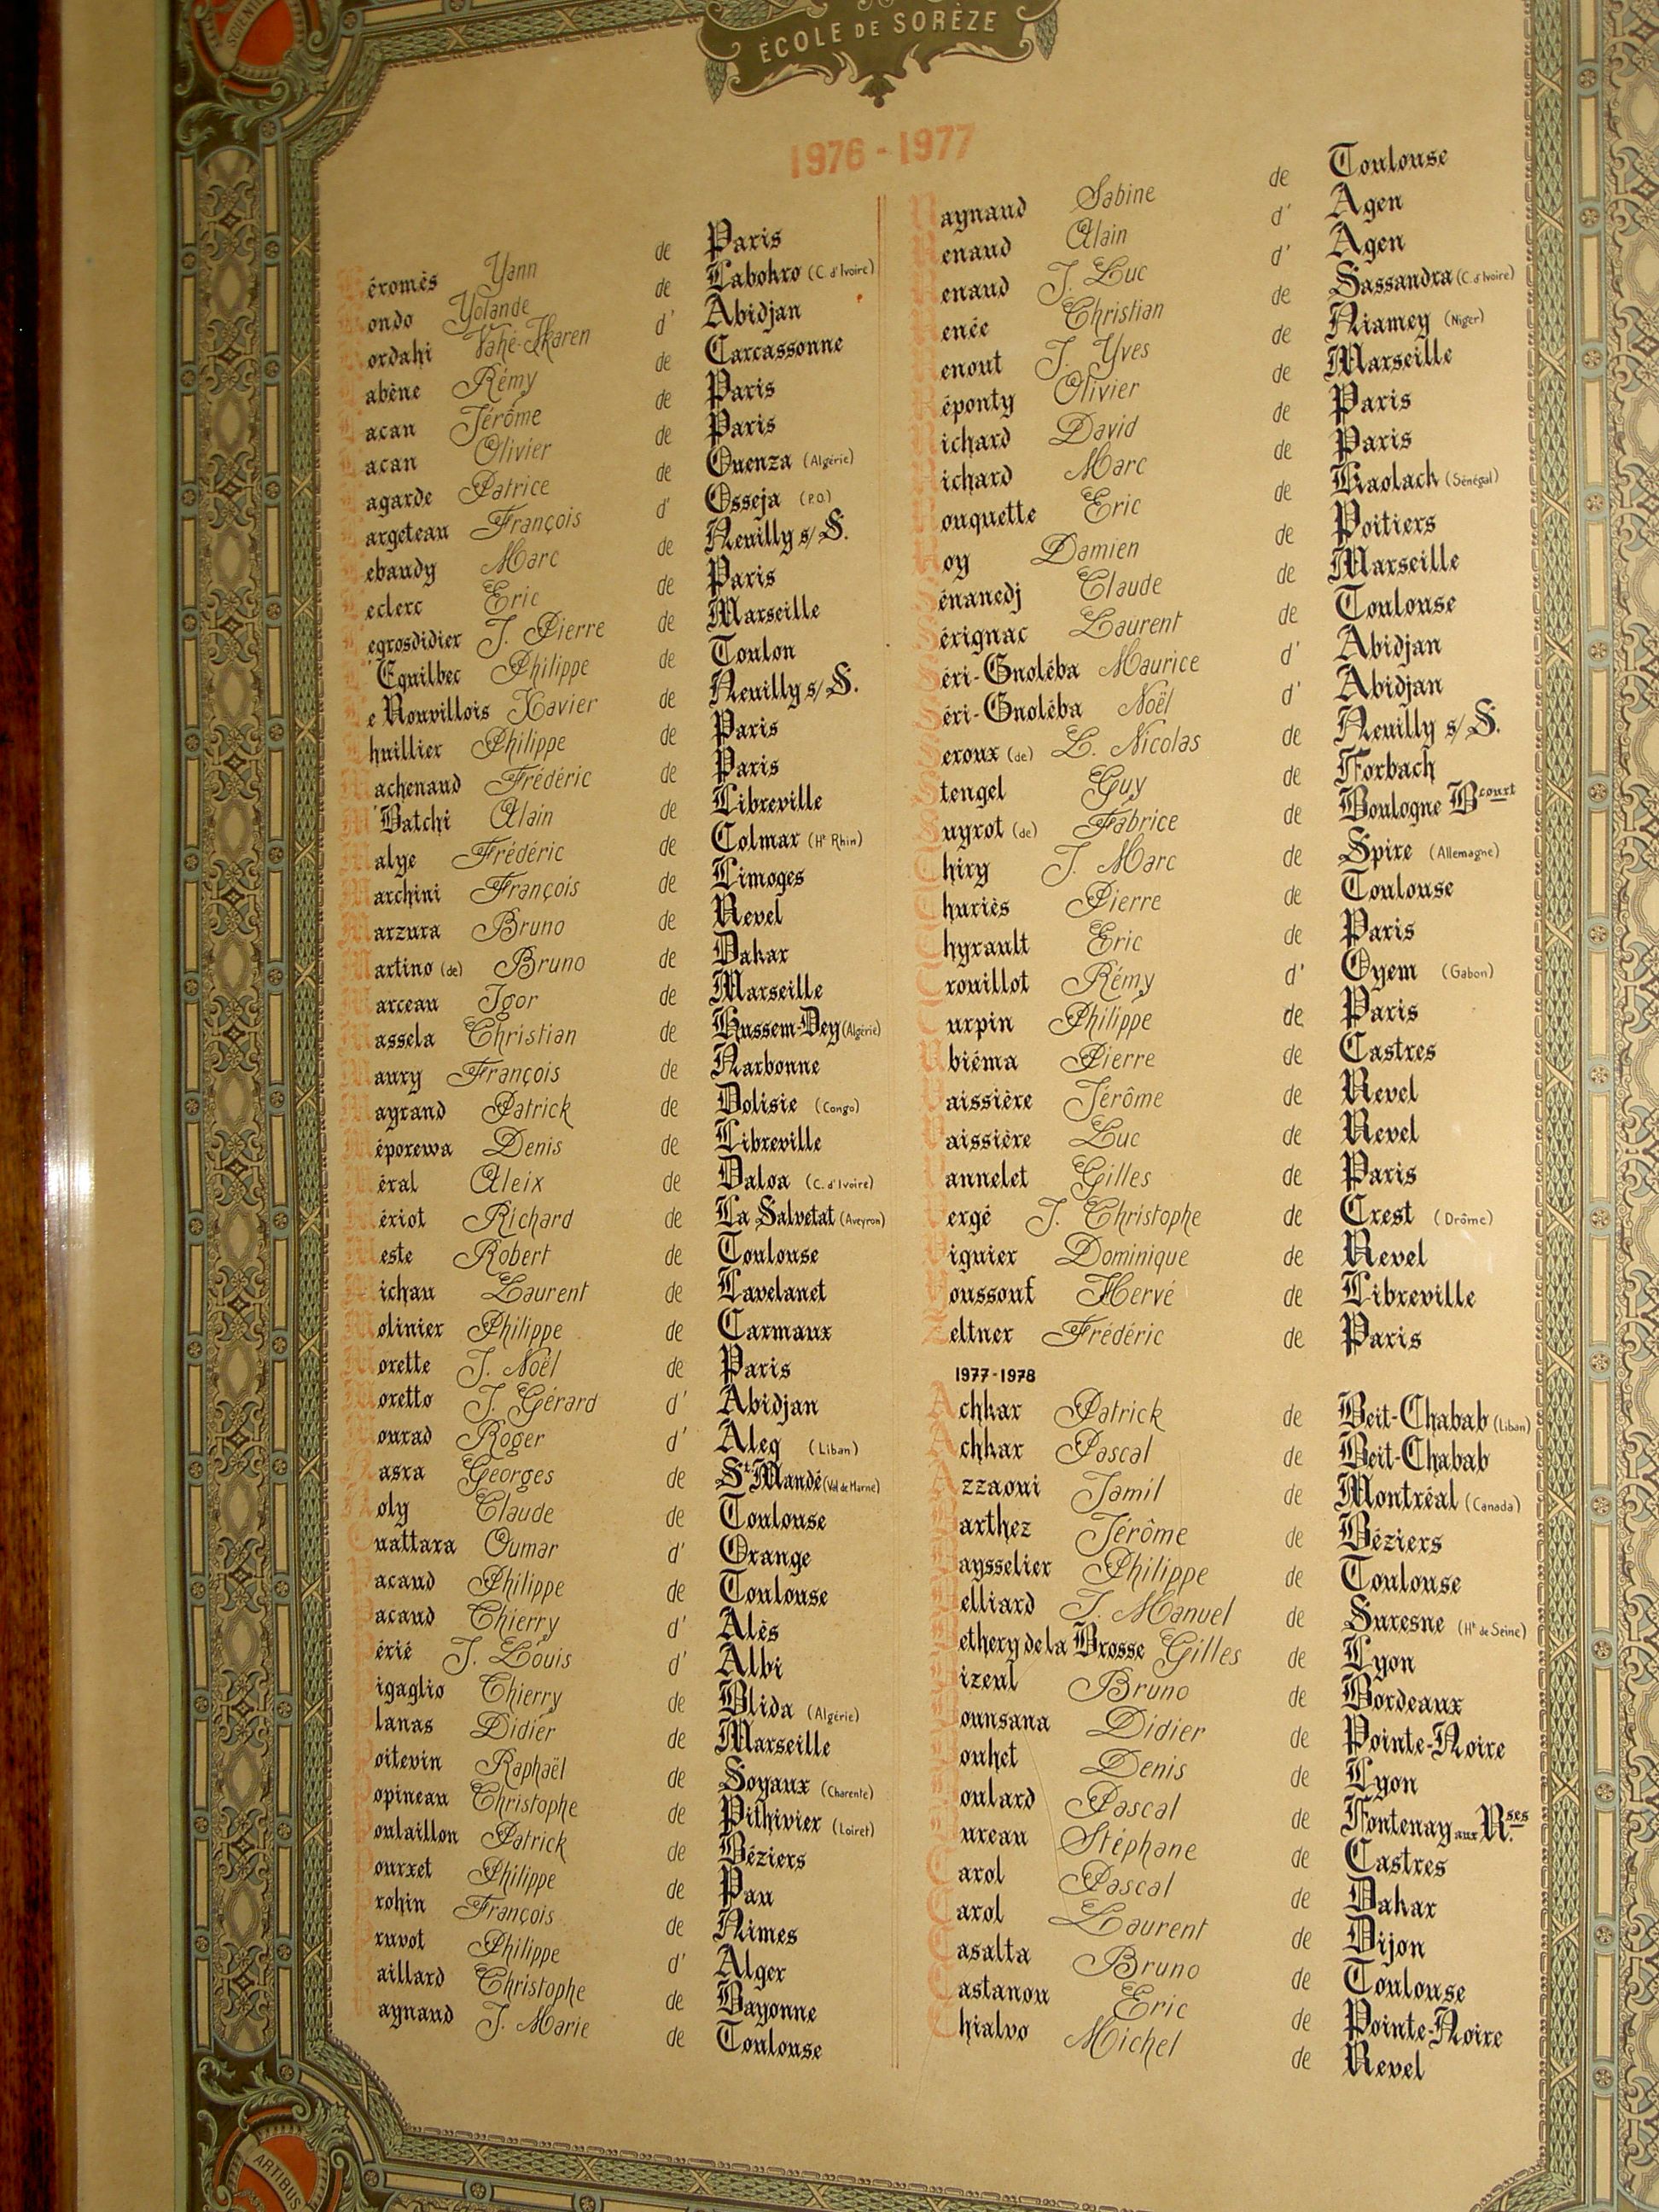 SCIENTI
ÉCOLE DE SORÈZE
1976 - 1977
Kéromès Yann de Paris
Kondo Yolande de Labokro (C. d'Ivoire)
Kordahi Vahé-Karen d' Abidjan
Labène Rémy de Carcassonne
Lacan Jérôme de Paris
Lacan Olivier de Paris
Lagarde Patrice de Ouenza (Algérie)
Largeteau François d' Osseja (P.O.)
Lebaudy Marc de Neuilly s/ S.
Leclerc Eric de Paris
Legrosdidier J. Pierre de Marseille
L'Equilbec Philippe de Toulon
Le Rouvillois Xavier de Neuilly s/ S.
Lhuillier Philippe de Paris
Machenaud Frédéric de Paris
M'Batchi Alain de Libreville
Malye Frédéric de Colmar (Ht Rhin)
Marchini François de Limoges
Marzura Bruno de Revel
Martino (de) Bruno de Dakar
Marceau Igor de Marseille
Massela Christian de Hussem-Dey (Algérie)
Maury François de Narbonne
Mayrand Patrick de Dolisie (Congo)
Méporewa Denis de Libreville
Méral Aleix de Daloa (C. d'Ivoire)
Mériot Richard de La Salvetat (Aveyron)
Meste Robert de Toulouse
Michau Laurent de Lavelanet
Molinier Philippe de Carmaux
Morette J. Noël de Paris
Moretto J. Gérard d' Abidjan
Mourad Roger d' Aleg (Liban)
Nasra Georges de St Mandé (Val de Marne)
Noly Claude de Toulouse
Ouattara Oumar d' Orange
Pacaud Philippe de Toulouse
Pacaud Thierry d' Alès
Périé J. Louis d' Albi
Pigaglio Thierry de Blida (Algérie)
Planas Didier de Marseille
Poitevin Raphaël de Soyaux (Charente)
Popineau Christophe de Pithivier (Loiret)
Poulaillon Patrick de Béziers
Pourxet Philippe de Pau
Prohin François de Nimes
Pruvot Philippe d' Alger
Raillard Christophe de Bayonne
Raynaud J. Marie de Toulouse
Raynaud Sabine de Toulouse
Renaud Alain d' Agen
Renaud J. Luc d' Agen
Renée Christian de Sassandra (C. d'Ivoire)
Renout J. Yves de Niamey (Niger)
Réponty Olivier de Marseille
Richard David de Paris
Richard Marc de Paris
Rouquette Eric de Kaolack (Sénégal)
Roy Damien de Poitiers
Sénanedj Claude de Marseille
Sérignac Laurent de Toulouse
Séri-Gnoléba Maurice d' Abidjan
Séri-Gnoléba Noël d' Abidjan
Seroux (de) L. Nicolas de Neuilly s/ S.
Stengel Guy de Forbach
Suyrot (de) Fabrice de Boulogne Bcourt
Thiry J. Marc de Spire (Allemagne)
Thuriès Pierre de Toulouse
Thyrault Eric de Paris
Trouillot Rémy d' Oyem (Gabon)
Turpin Philippe de Paris
Ubiéma Pierre de Castres
Vaissière Jérôme de Revel
Vaissière Luc de Revel
Vannelet Gilles de Paris
Vergé J. Christophe de Crest (Drôme)
Viguier Dominique de Revel
Youssouf Hervé de Libreville
Zeltner Frédéric de Paris
1977-1978
Achkar Patrick de Beit-Chabab (Liban)
Achkar Pascal de Beit-Chabab
Azzaoui Jamil de Montréal (Canada)
Barthez Jérôme de Béziers
Baysselier Philippe de Toulouse
Belliard J. Manuel de Suresne (Hts de Seine)
Bethery de la Brosse Gilles de Lyon
Bizeul Bruno de Bordeaux
Bounsana Didier de Pointe-Noire
Bouhet Denis de Lyon
Boulard Pascal de Fontenay aux Rses
Bureau Stéphane de Castres
Carol Pascal de Dakar
Carol Laurent de Dijon
Casalta Bruno de Toulouse
Castanou Eric de Pointe-Noire
Chialvo Michel de Revel
ARTIBUS